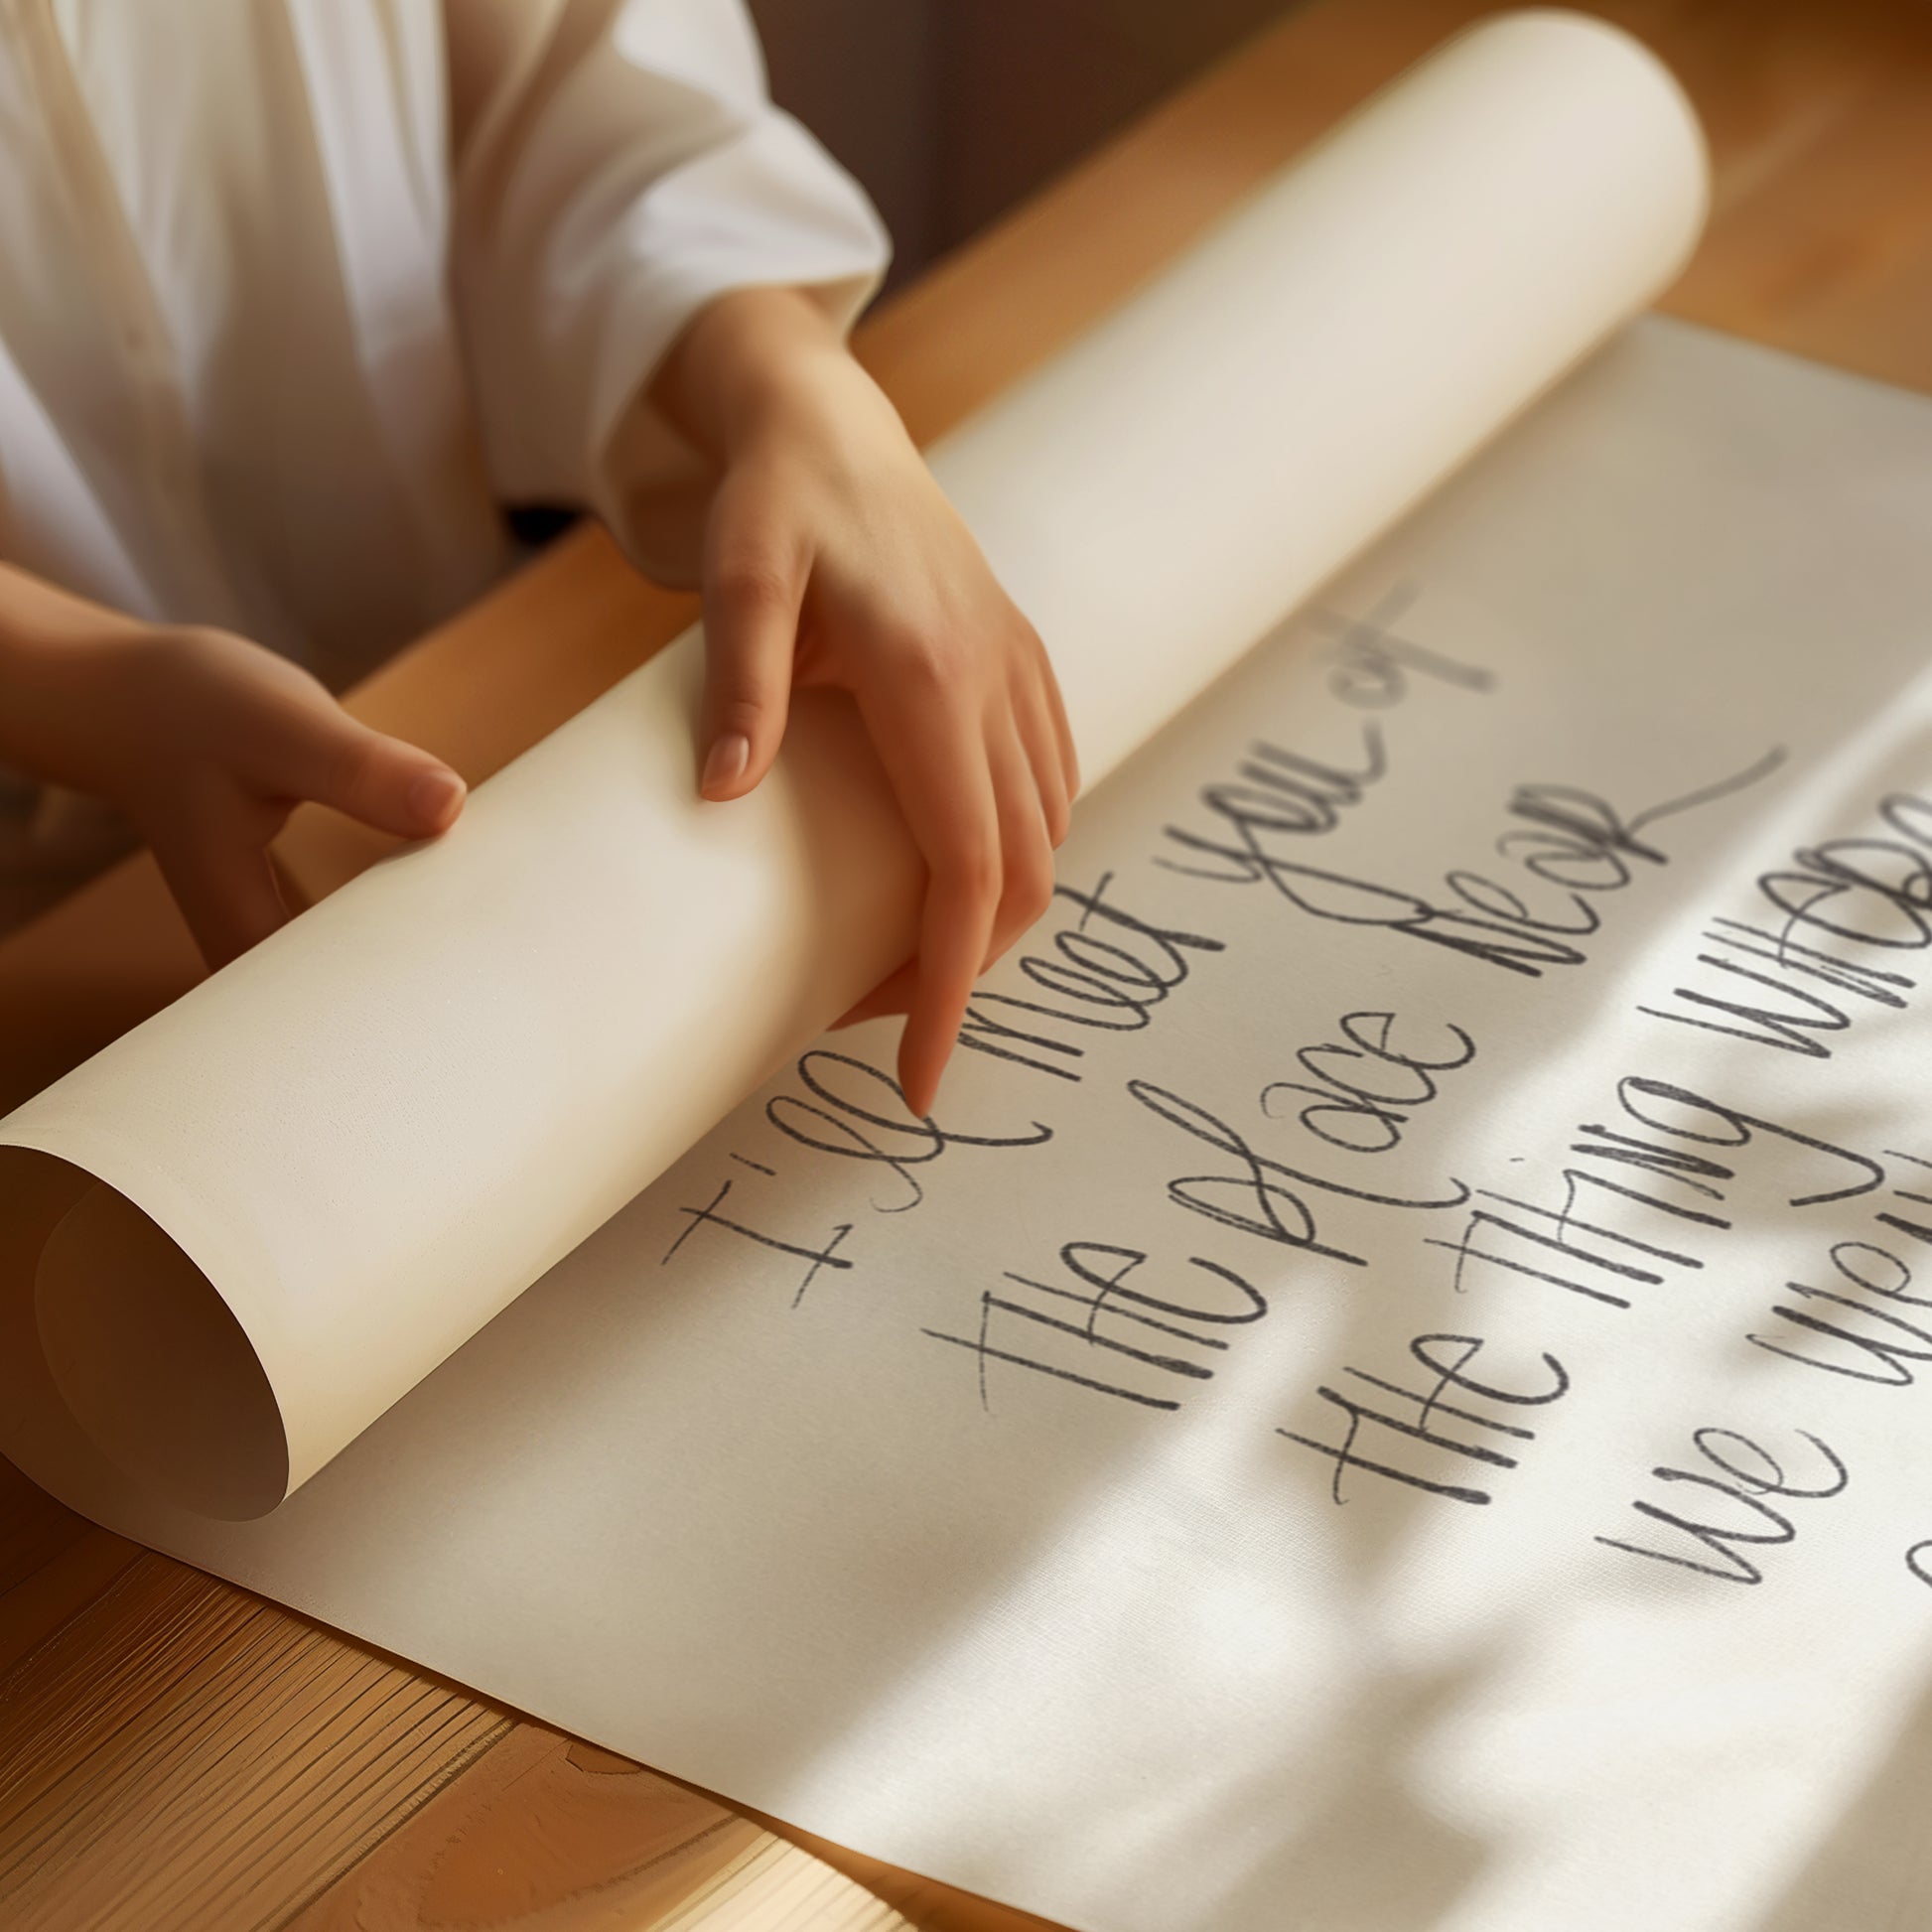 I'll meet you at
the place near
the thing where
we we